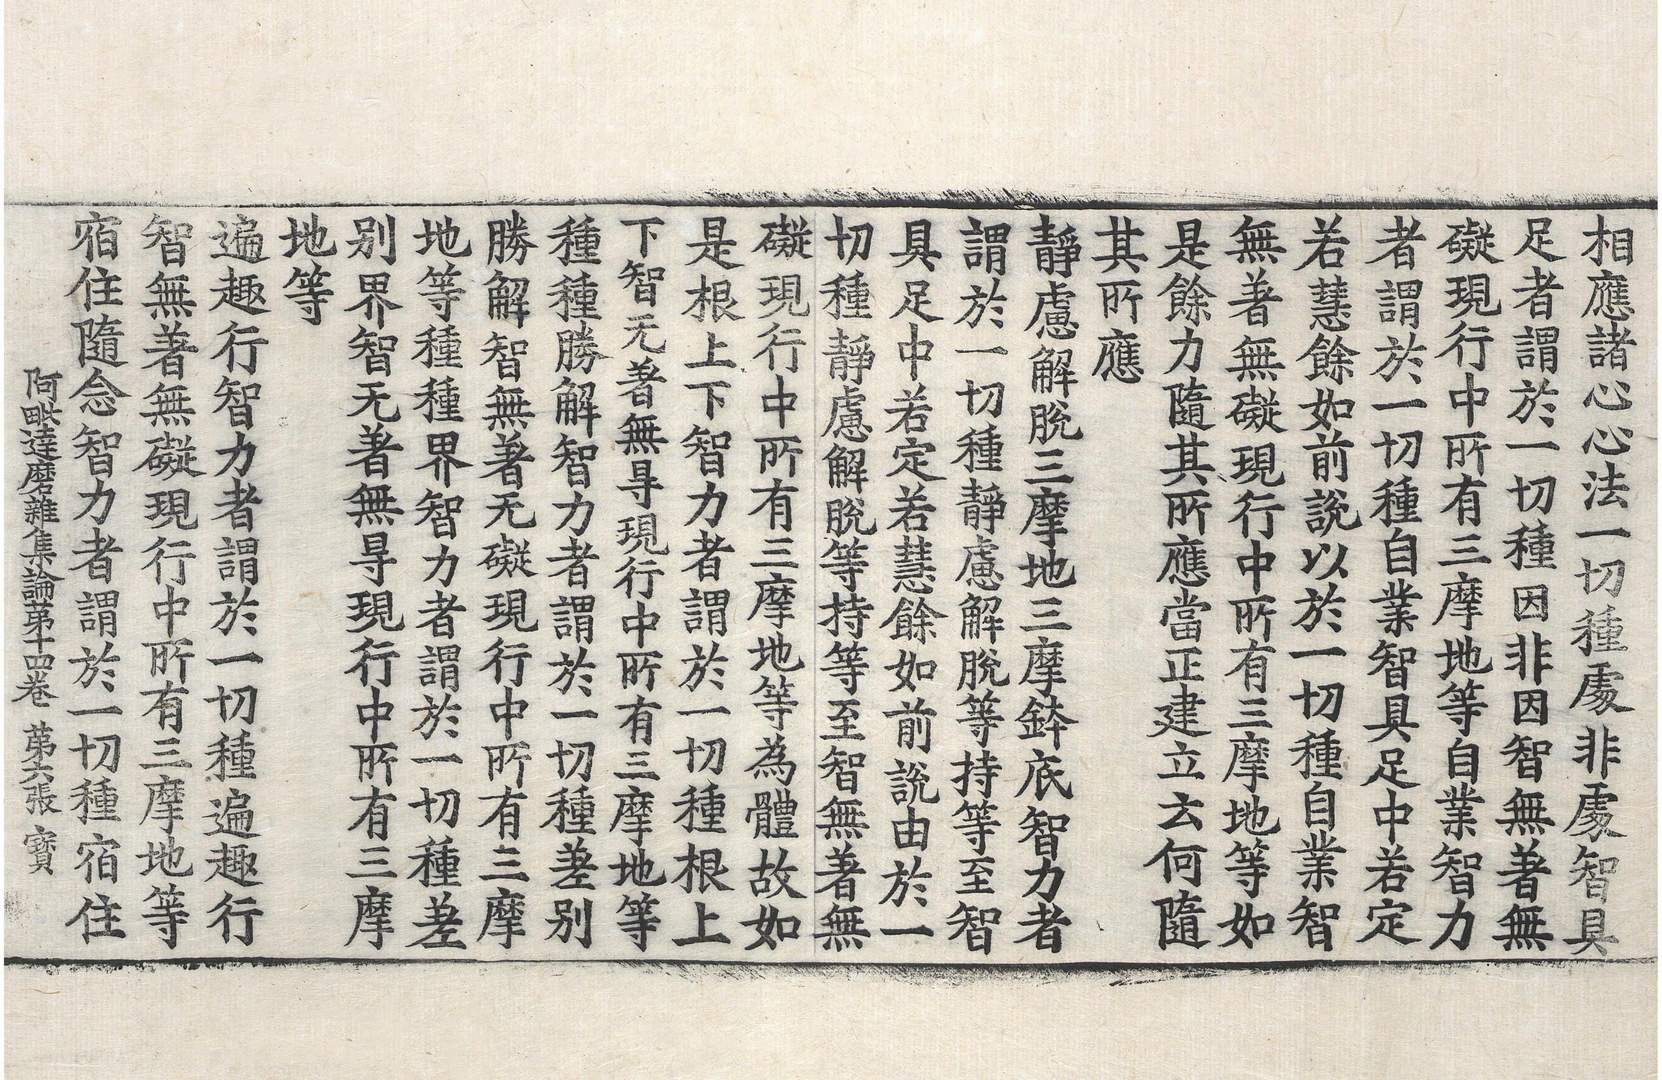 相應諸心心法一切種處非處智具
足者謂於一切種因非因智無著無
礙現行中所有三摩地等自業智力
者謂於一切種自業智具足中若定
若慧餘如前說以於一切種自業智
無著無礙現行中所有三摩地等如
是餘力隨其所應當正建立云何隨
其所應
靜慮解脫三摩地三摩鉢底智力者
謂於一切種靜慮解脫等持等至智
具足中若定若慧餘如前說由於一
切種靜慮解脫等持等至智無著無
礙現行中所有三摩地等為體故如
是根上下智力者謂於一切種根上
下智无著無㝵現行中所有三摩地等
種種勝解智力者謂於一切種差別
勝解智無著无礙現行中所有三摩
地等種種界智力者謂於一切種差
別界智无著無㝵現行中所有三摩
地等
遍趣行智力者謂於一切種遍趣行
智無著無礙現行中所有三摩地等
宿住隨念智力者謂於一切種宿住
阿毗達磨雜集論第十四卷 第六張 寶